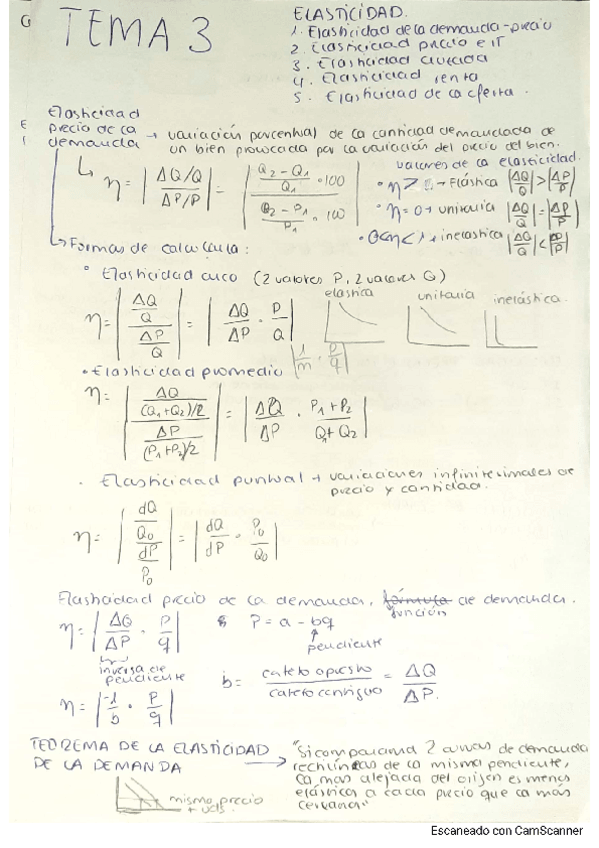 G
TEMA 3
ELASTICIDAD.
1. Elasticidad de la demanda-precio
2. Elasticidad precio e IT
3. Elasticidad cruzada
4. Elasticidad renta
5. Elasticidad de la oferta.
Elasticidad
precio de la
demanda → variación porcentual de la cantidad demandada de
un bien provocada por la variación del precio del bien.
η = |ΔQ/Q / ΔP/P| = |Q2 - Q1 / Q1 · 100 / P2 - P1 / P1 · 100|
valores de la elasticidad.
→ Elástica |ΔQ/Q| > |ΔP/P|
· η = 0 → unitaria |ΔQ/Q| = |ΔP/P|
· 0<η<1 → inelástica
Formas de calcularla:
· Elasticidad arco (2 valores P, 2 valores Q)
elástica unitaria inelástica.
η = |ΔQ/Q / ΔP/Q| = |ΔQ/ΔP · P/Q|
|1/m · P/q|
· Elasticidad promedio
η = |ΔQ/(Q1+Q2)/2 / ΔP/(P1+P2)/2| = |ΔQ/ΔP · P1+P2/Q1+Q2|
· Elasticidad puntual → variaciones infinitesimales de
precio y cantidad.
η = |dQ/Q0 / dP/P0| = |dQ/dP · P0/Q0|
Elasticidad precio de la demanda, fórmula de demanda.
función
η = |ΔQ/ΔP · P/q| P = a - bq
pendiente
inversa de
pendiente
b = cateto opuesto / cateto contiguo = ΔQ/ΔP.
η = |-1/b · P/q|
TEOREMA DE LA ELASTICIDAD
DE LA DEMANDA
→ "Si comparamos 2 curvas de demanda
rectilíneas de la misma pendiente,
la más alejada del origen es menos
elástica a cada precio que la más
cercana"
mismo precio
+ uds
Escaneado con CamScanner